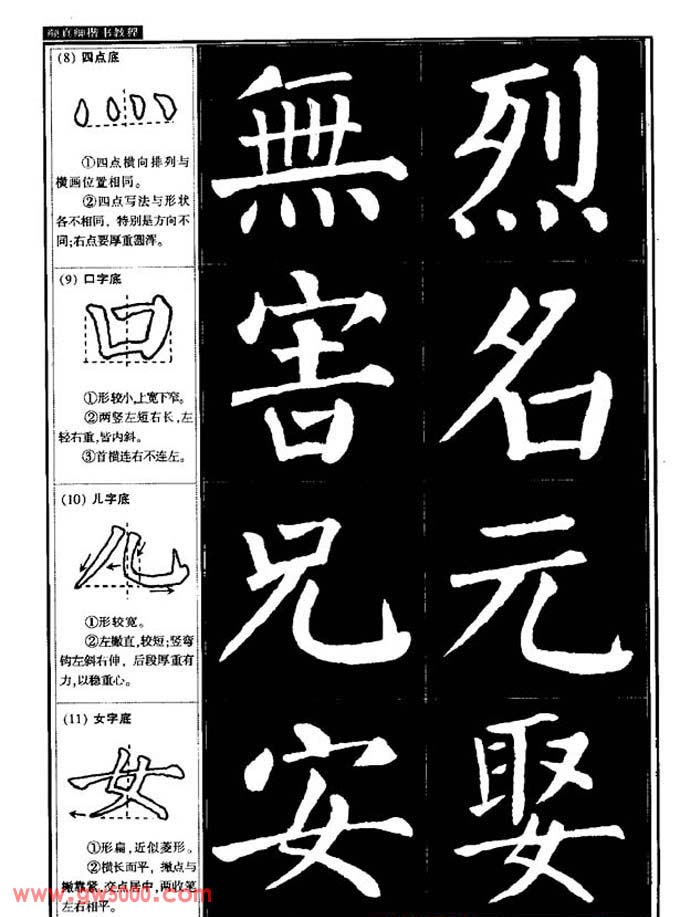 颜真卿楷书教程
(8) 四点底
①四点横向排列与
横画位置相同。
②四点写法与形状
各不相同，特别是方向不
同;右点要厚重圆浑。
無 烈
(9) 口字底
口
①形较小,上宽下窄。
②两竖左短右长,左
轻右重,皆内斜。
③首横连右不连左。
害 名
(10) 儿字底
儿
①形较宽。
②左撇直,较短;竖弯
钩左斜右伸，后段厚重有
力,以稳重心。
兄 元
(11) 女字底
女
①形扁，近似菱形。
②横长而平，撇点与
撇靠紧,交点居中,两收笔
左右相平。
安 娶
www.gw5000.com